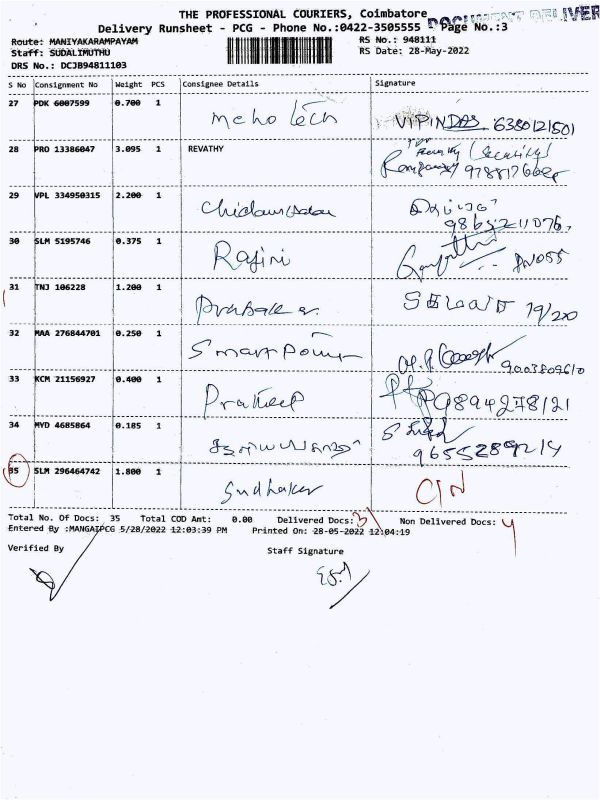 THE PROFESSIONAL COURIERS, Coimbatore
DOCUMENT DELIVER
Delivery Runsheet - PCG - Phone No.:0422-3505555 Page No.:3
Route: MANIYAKARAMPAYAM
RS No.: 948111
Staff: SUDALIMUTHU
RS Date: 28-May-2022
DRS No.: DCJB94811103
S No Consignment No Weight PCS Consignee Details Signature
27 PDK 6007599 0.700 1 Meho Tech VIPINDAS 6380121501
28 PRO 13386047 3.095 1 REVATHY (Security)
29 VPL 334950315 2.200 1
30 SLM 5195746 0.375 1 Rajini
31 TNJ 106228 1.200 1 Prabakar
32 MAA 276844701 0.250 1 Smart Power 9003809610
33 KCM 21156927 0.400 1 Pradeep 9894278121
34 MYD 4685864 0.185 1 9655289214
35 SLM 296464742 1.800 1 Sudhakar C/N
Total No. Of Docs: 35 Total COD Amt: 0.00 Delivered Docs: 31 Non Delivered Docs: 4
Entered By :MANGAIPCG 5/28/2022 12:03:39 PM Printed On: 28-05-2022 12:04:19
Verified By
Staff Signature